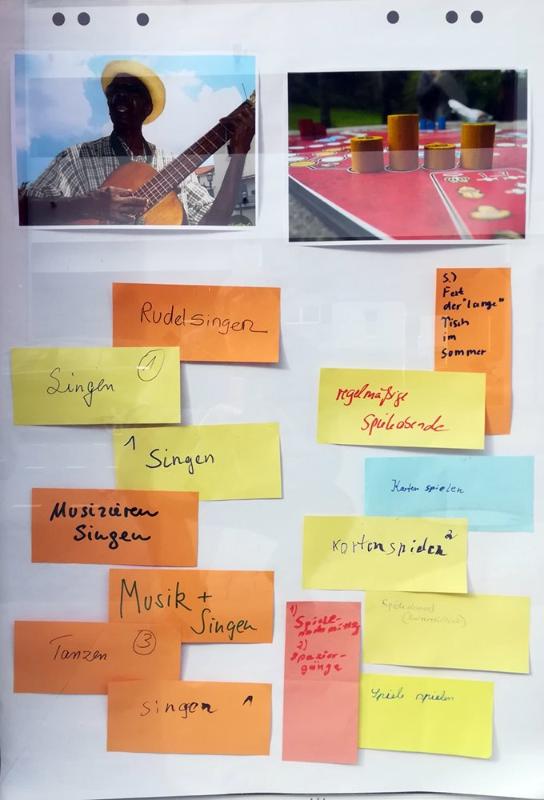 Rudelsingen
Singen 1
1 Singen
Musizieren
Singen
Musik +
Singen
Tanzen 3
singen 1
5.)
Fest
der "lange"
Tisch
im
Sommer
regelmäßige
Spieleabende
Karten spielen
Kartenspielen 2
Spieleabend
1)
Spiele-
nachmittag
2)
Spazier-
gänge
Spiele spielen